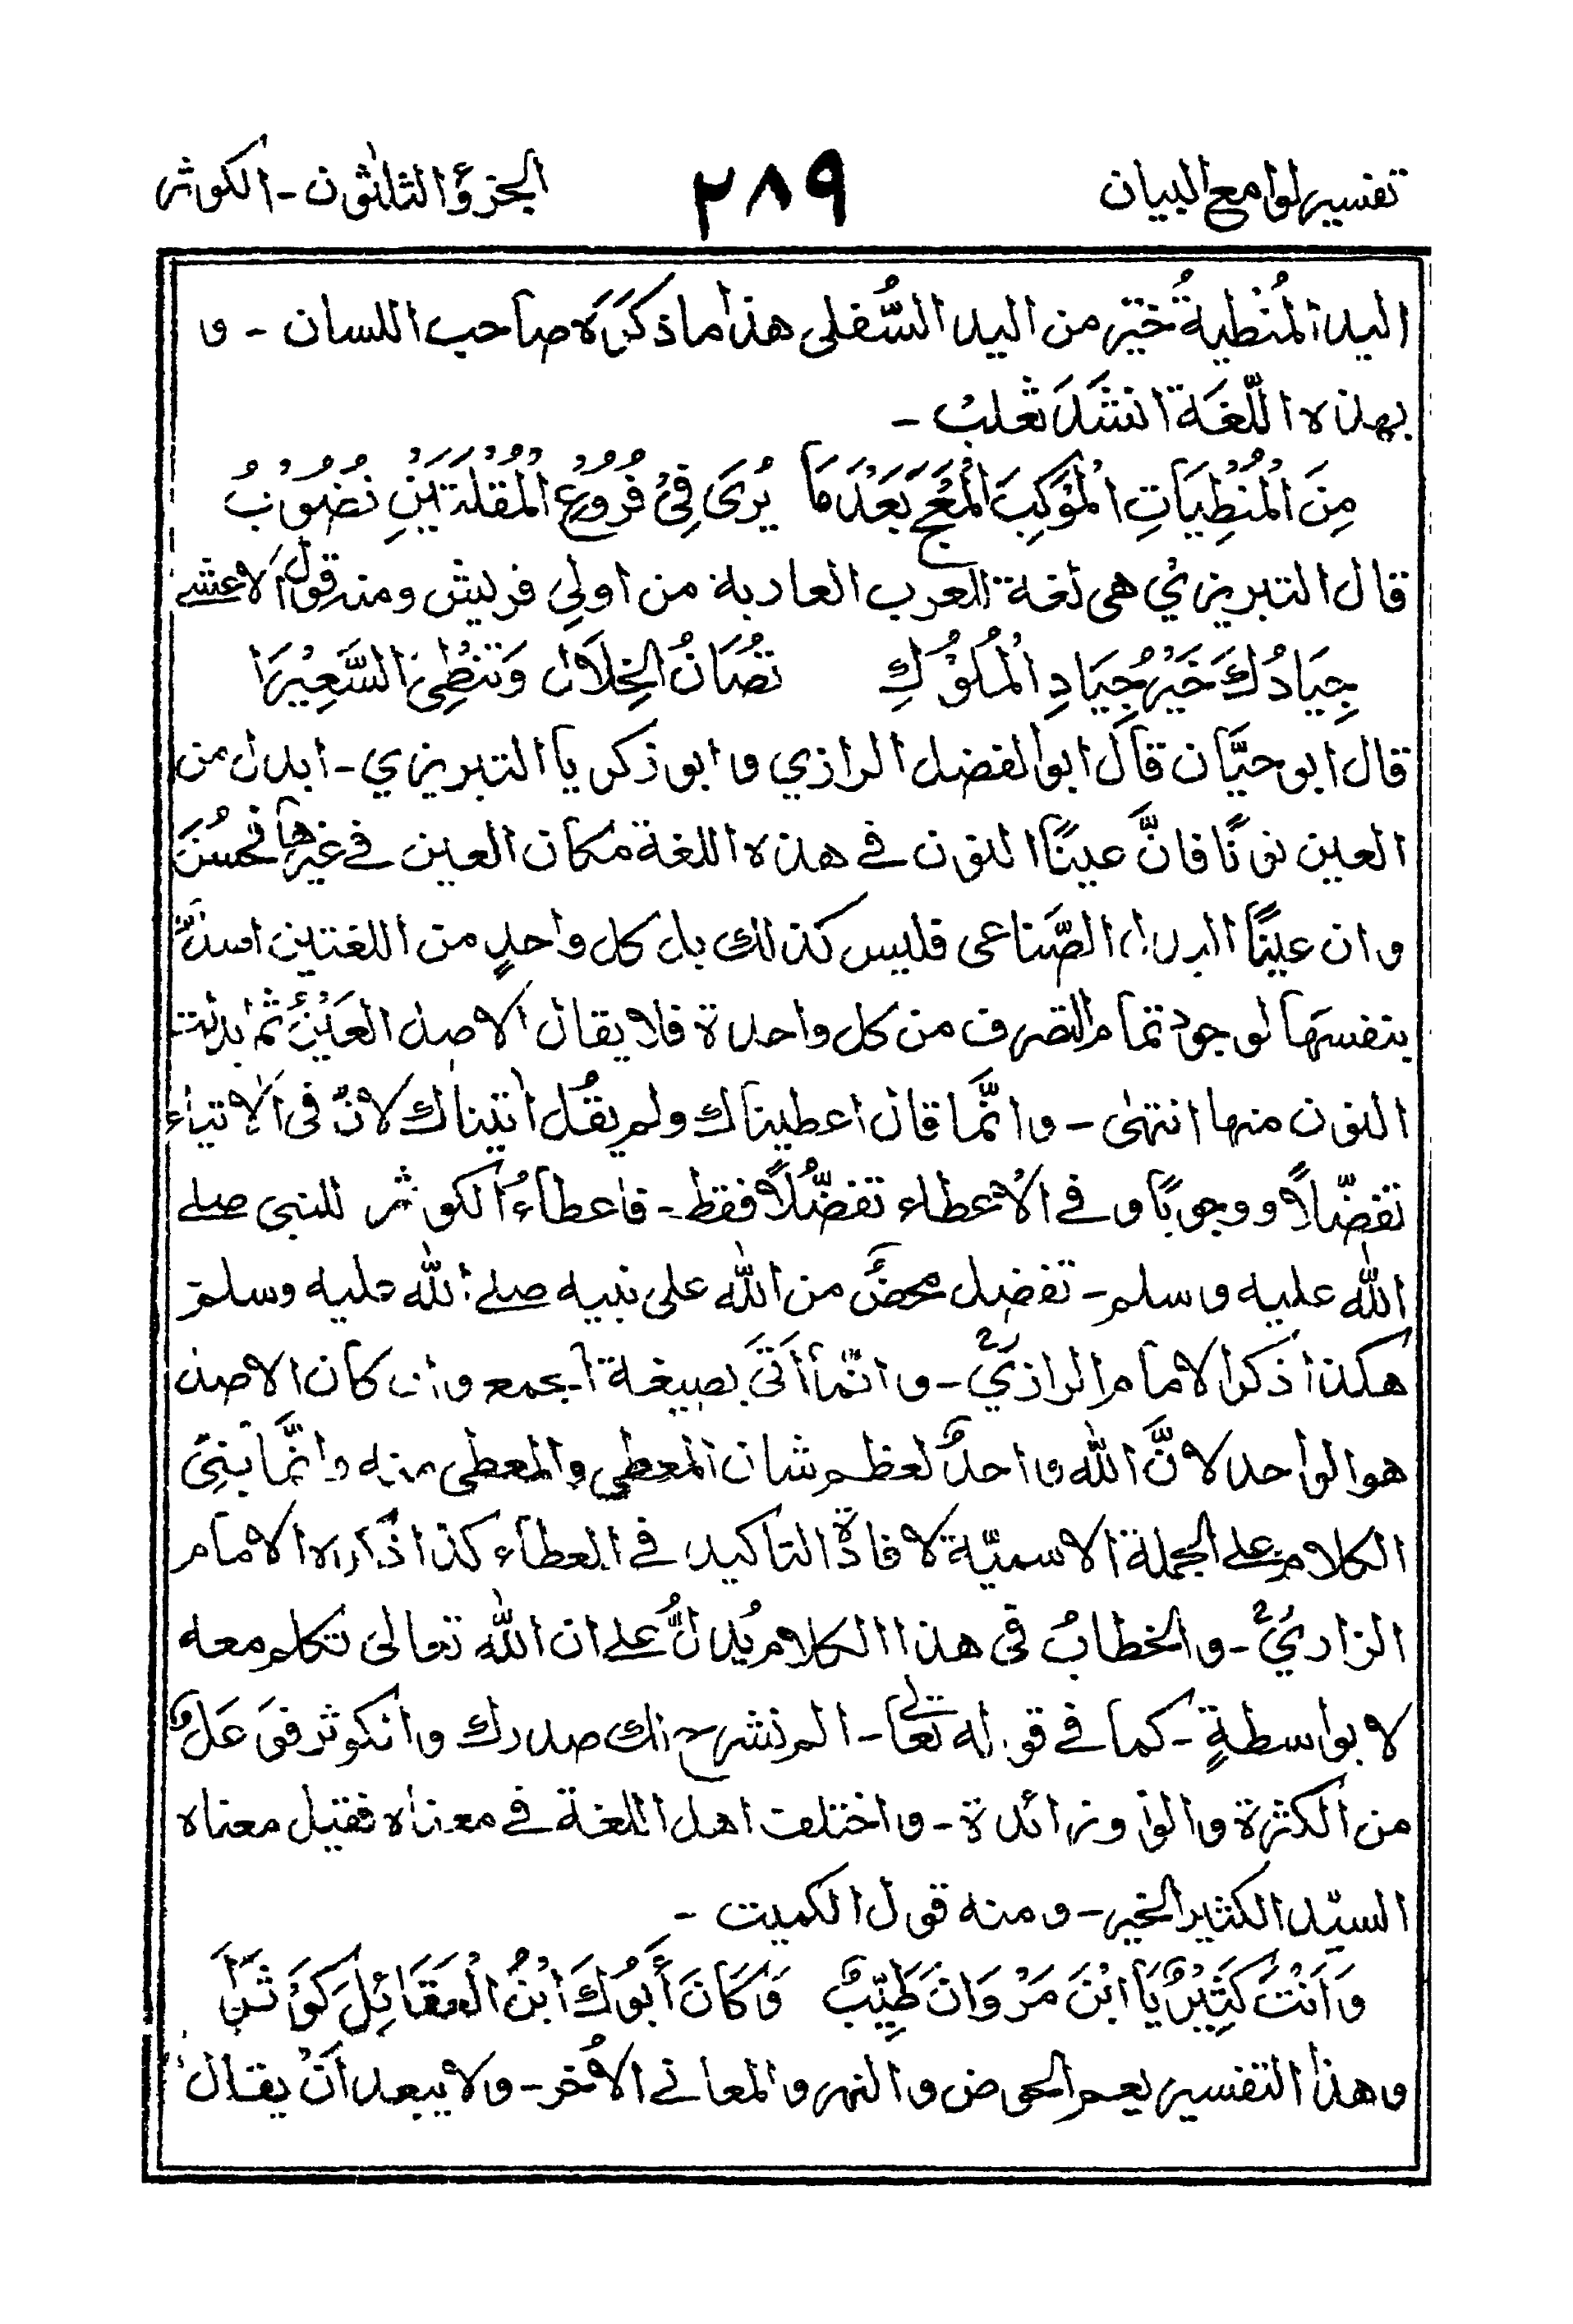 تفسير لوامع البيان ٢٨٩ الجزؤ الثلثون - الكوثر
اليد المُنْطيةُ خيَر من اليد السُّفلى هذا ما ذَكَرَه صاحب اللسان - و
بهذه اللّغَة انشَدَ ثعلبْ -
مِنَ الْمُنْطِيَاتِ الْمَوْكِبَ الْمَعْجَ بَعْدَمَا يُرىَ فِيْ فُرُوْعِ الْمُقْلَتَيْنِ نُضُوْبُ
قال التبريزيْ هى لغة العرب العاربة من اولي قريش ومنه قول الاعشے
جِيَادُكَ خَيْرُ جِيَادِ الْمُلُوْكِ تُصَانُ الجِلَالَ وَتَنْطِىْ السَّعِيْرَا
قال ابو حيَّان قالَ ابو الفضل الرازي و ابو زكريا التبريزي - ابدل من
العين نونًا فانَّ عينًا النون فى هذه اللغة مكان العين فے غيرها فحسُنَ
وان عينًا البدل الصَّناعى فليس كذلك بل كل واحدٍ من اللغتين اصلٌ
بنفسها لوجود تمام التصرف من كل واحدة فلا يقال الاصل العَيْنُ ثم ابدلت
النون منها انتهى - وانَّما قال اعطيناك ولم يقُل اتيناك لانّ فى الاتياء
تفضّلاً ووجوبًا و فے الاعطاء تفضُّلاً فقط - فاعطاءُ الكوثر للنبى صلے
الله عليه وسلم - تفضل محضٌ من الله على نبيه صلے الله عليه وسلم
هكذا ذكر الامام الرازيؒ - وانّما أتَىَ بصيغة الجمع وان كان الاصل
هو الواحد لانَّ الله واحدٌ لعظم شان المعطى والمعطى منه وانَّما بنىَ
الكلام على الجملة الاسميّة لافادةِ التاكيد فے العطاء كذا ذكره الامام
الرازيؒ - والخطابُ فى هذا الكلام يُدلُّ علے ان الله تعالى تكلم معه
لا بواسطةٍ - كما فے قوله تعالى - الم نشرح لك صدرك والكوثر فوَعَل
من الكثرة والواو زائدة - واختلف اهل اللغة فے معناه فقيل معناه
السيّد الكثير الخير - ومنه قول الكميت -
وَاَنْتَ كَثِيْرٌ يَا ابْنَ مَرْوَانَ طَيِّبٌ وَكَانَ أَبُوْكَ ابْنُ الْعَقَائِلَ كَوْثَرًا
وهذا التفسير يعم الحوض والنهر والمعانے الاُخر - ولا يبعد اَنْ يقال